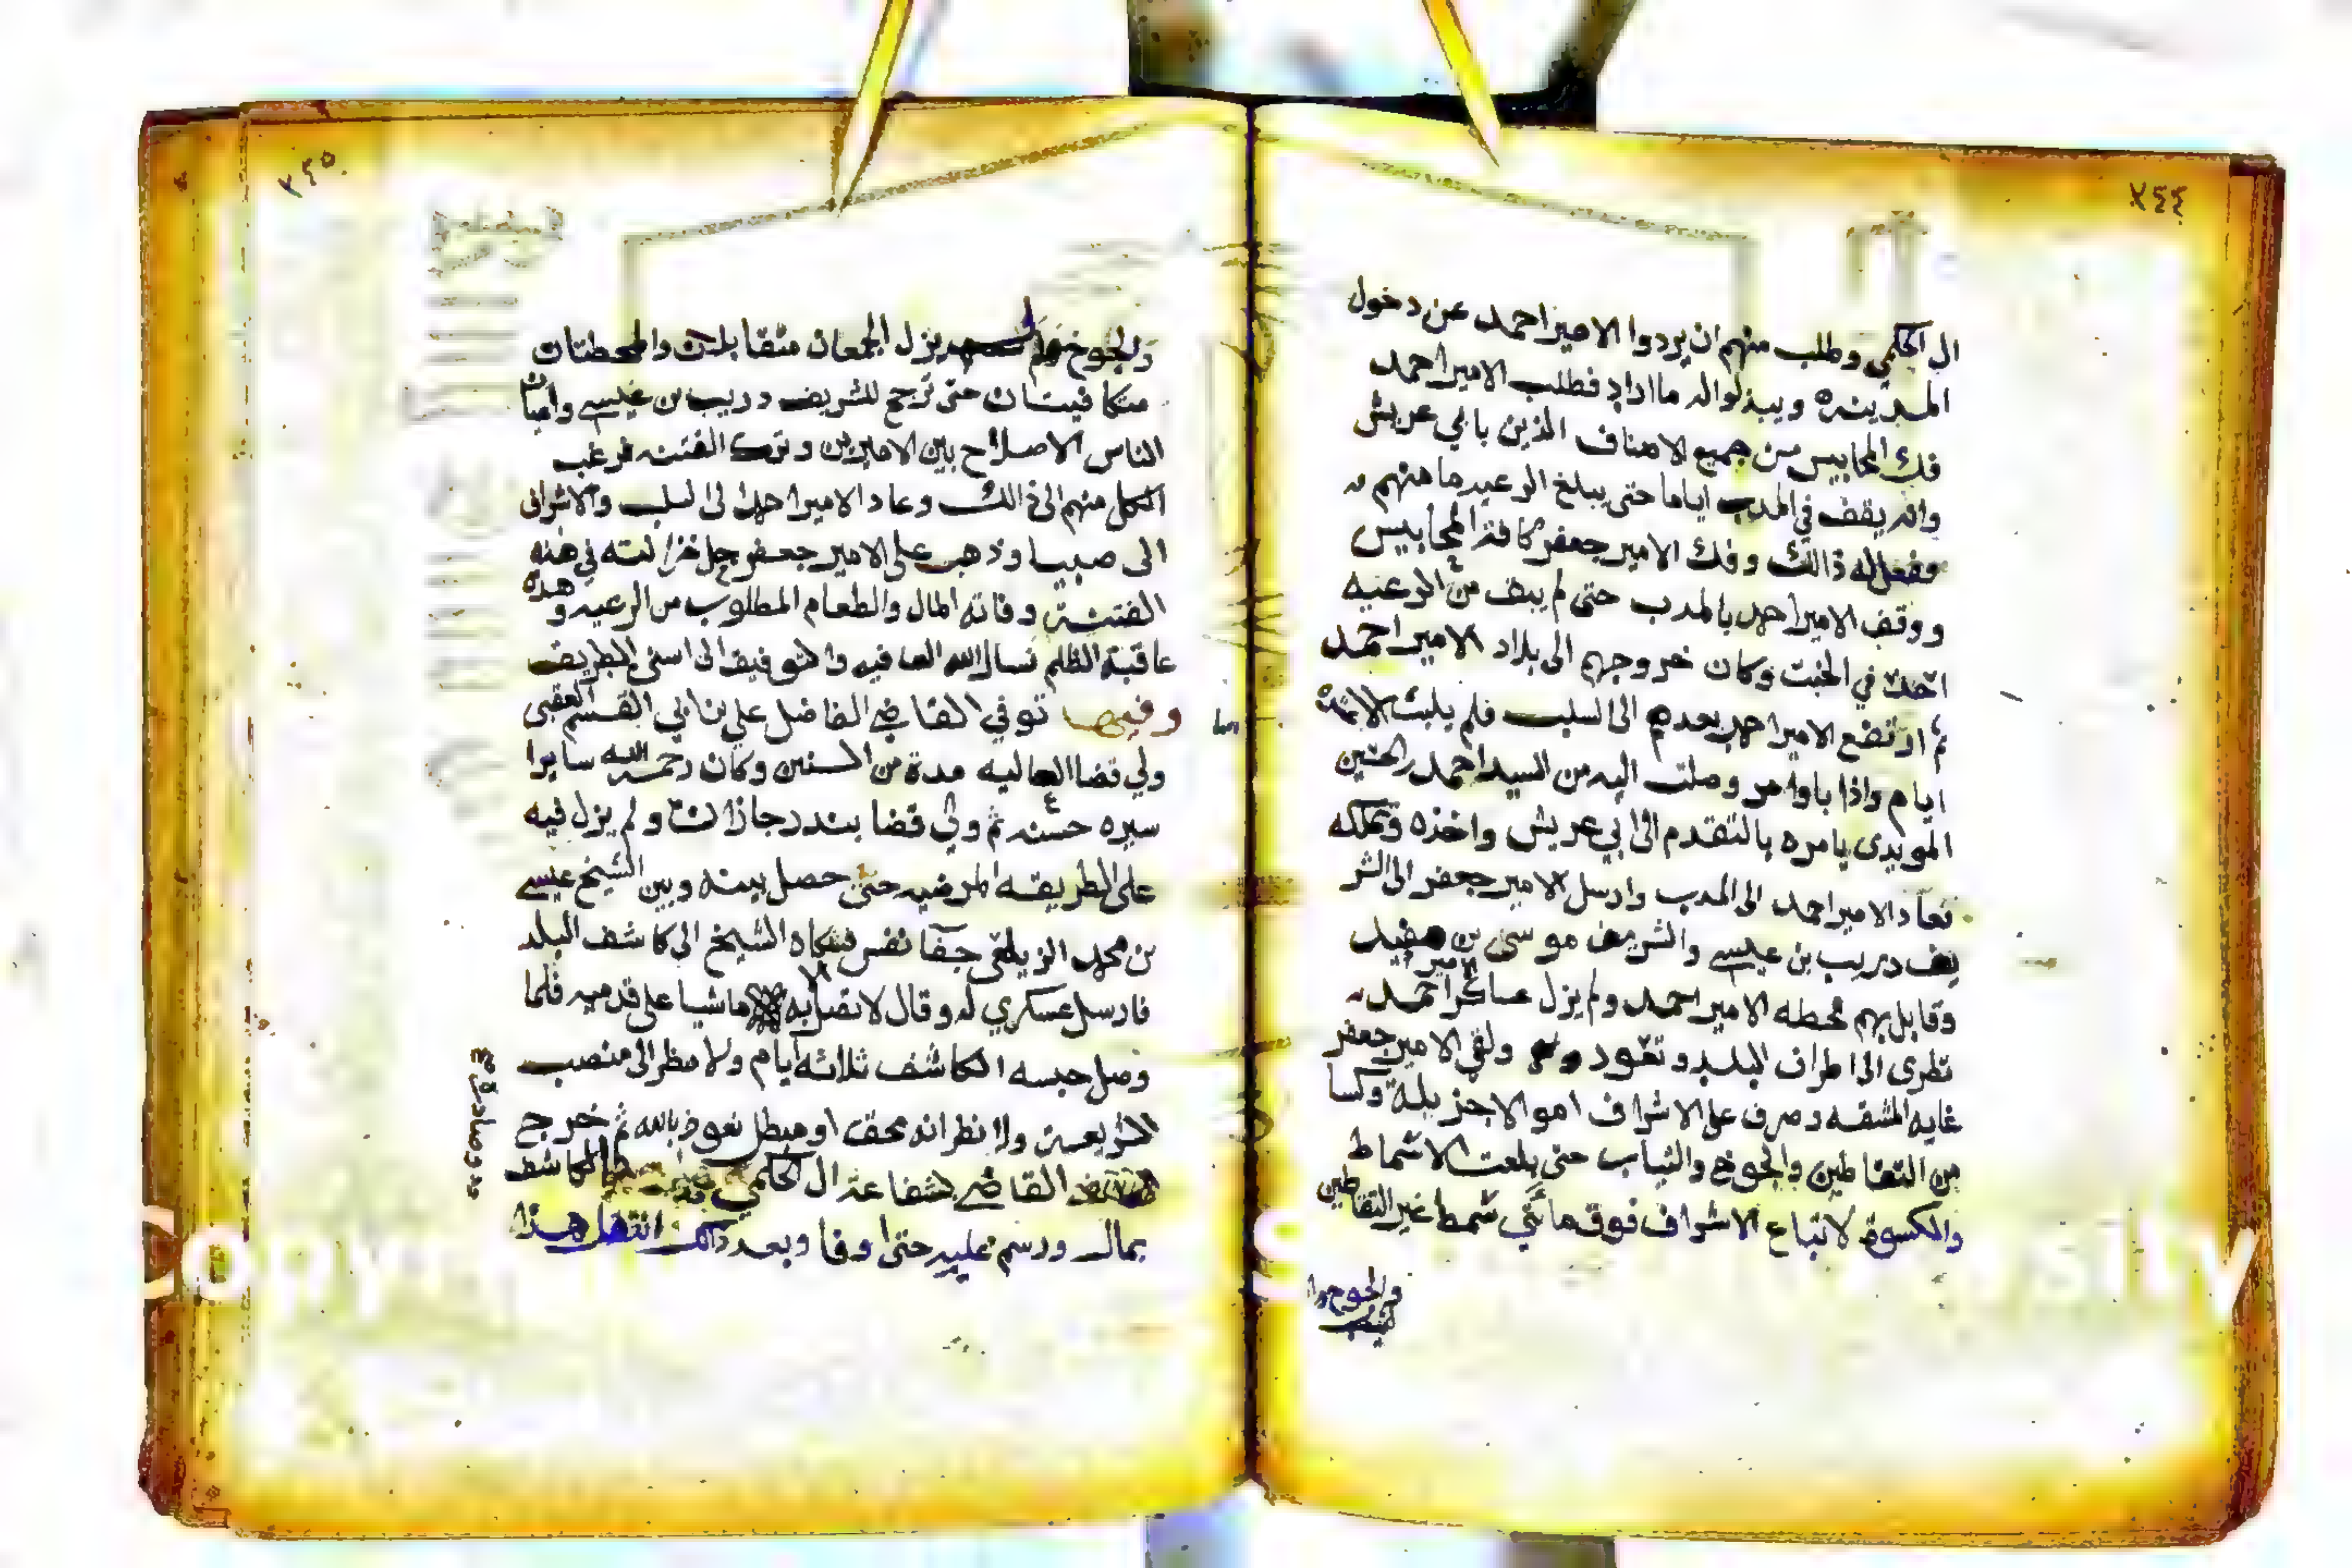 ٢٤٤
ال الحكمي وطلب منهم ان يردوا الامير احمد عن دخول
المدينه ويبذلوا له ما اراد فطلب الامير احمد
فك المحابيس من جميع الاصناف الذين بابي عريش
وانه يقف في المدب اياما حتى يبلغ الرعيه مامنهم
ففعل له ذالك وفك الامير جعفر كافة المحابيس
ووقف الامير احمد بالمدب حتى لم يبق من الرعيه
احد في الخبت وكان خروجهم الى بلاد الامير احمد
ثم ارتفع الامير احمد بعدهم الى السلب فلم يلبث الا ثلاثة
ايام واذا باوامر وصلت اليه من السيد احمد بن الحسين
المويدي يامره بالتقدم الى ابي عريش واخذه وتملكه
فعاد الامير احمد الى المدب وارسل الامير جعفر الى الشر
يف دريب بن عيسى والشريف موسى بن
وقابل بهم محطه الامير احمد ولم يزل عساكر الامير احمد
تطرى الى اطراف البلد وتعود ولقي الامير جعفر
غايه المشقه وصرف على الاشراف اموالا جزيلة وكسا
من القفاطين والجوخ والثياب حتى بلغت الاشماط
والكسوة لاتباع الاشراف فوق مائتي شمط غير القفاطين
والجوخ ولم
٢٤٥
والجوخ ولم يزل الجمعان متقابلان والمحطتان
متكافيتان حتى ترجح للشريف دريب بن عيسى واعيان
الناس الاصلاح بين الاميرين وترك الفتنه فرغب
الكل منهم الى ذالك وعاد الامير احمد الى السلب والاشراف
الى صبيا وذهب على الامير جعفر جل خزانته في هذه
الفتنة وفاته المال والطعام المطلوب من الرعيه وهذه
عاقبة الظلم نسال الله العافيه والتوفيق الى اسنى الطريق
وفيها توفي القاضي الفاضل علي بن ابي القسم العقبي
ولي قضا العاليه مدة من السنين وكان رحمه الله سايرا
سيره حسنه ثم ولي قضا بندر جازان ولم يزل فيه
على الطريقه المرضيه حتى حصل بينه وبين الشيخ عيسى
بن محمد الزيلعي جفا نفس فشكاه الشيخ الى كاشف البلد
فارسل عسكري له وقال لا تصل به الا ماشيا على قدميه فلما
وصل حبسه الكاشف ثلاثه ايام ولا نظر الى منصب
الشريعة ولا نظر انه محق او مبطل نعوذ بالله ثم خرج
القاضي بشفاعة ال الحكمي الكاشف
بمال ورسم عليه حتى اوفا وبعد ذالك انتقل هذا